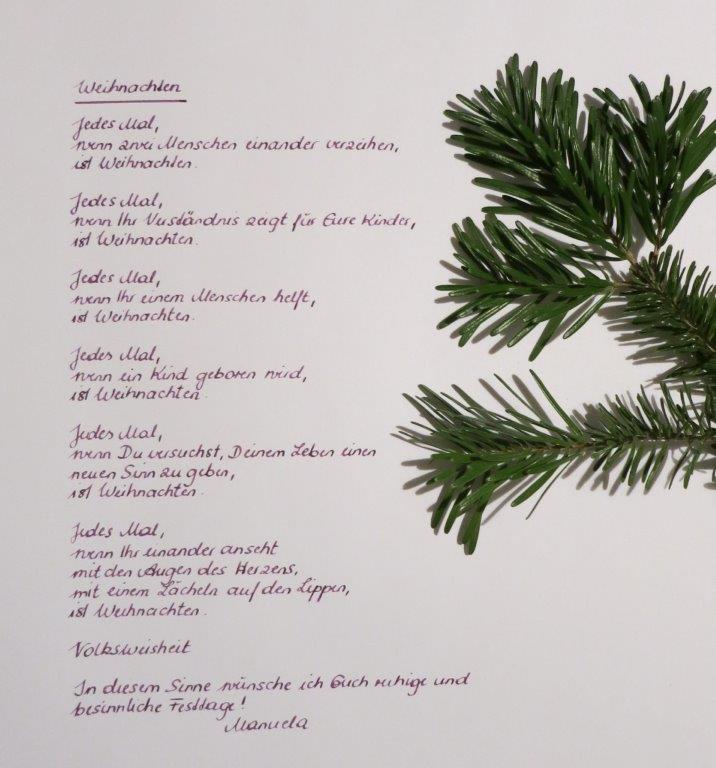 Weihnachten
Jedes Mal,
wenn zwei Menschen einander verzeihen,
ist Weihnachten.
Jedes Mal,
wenn Ihr Verständnis zeigt für Eure Kinder,
ist Weihnachten.
Jedes Mal,
wenn Ihr einem Menschen helft,
ist Weihnachten.
Jedes Mal,
wenn ein Kind geboren wird,
ist Weihnachten.
Jedes Mal,
wenn Du versuchst, Deinem Leben einen
neuen Sinn zu geben,
ist Weihnachten.
Jedes Mal,
wenn Ihr einander anseht
mit den Augen des Herzens,
mit einem Lächeln auf den Lippen,
ist Weihnachten.
Volksweisheit
In diesem Sinne wünsche ich Euch ruhige und
besinnliche Festtage!
Manuela